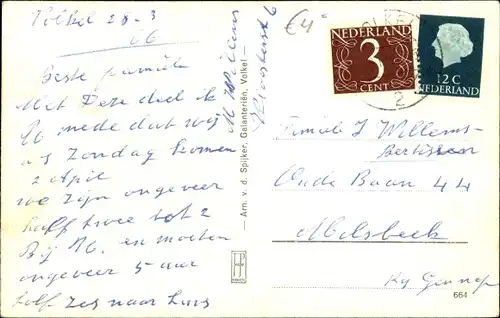 Volkel 28-3
66
Beste familie
Met Deze deel ik
U mede dat wij
a,s Zondag komen
2 Apr
we zijn ongeveer
half twee tot 2
Bij U. en moeten
ongeveer 5 uur
half zes naar huis
M Willems
Kloosterstr 6
— Arn. v. d. Spijker, Galanteriën, Volkel —
€4
NEDERLAND
3
CENT
12 C
NEDERLAND
2
Famile J Willems-
Oude Baan 44
Milsbeek
Bij Gennep
664